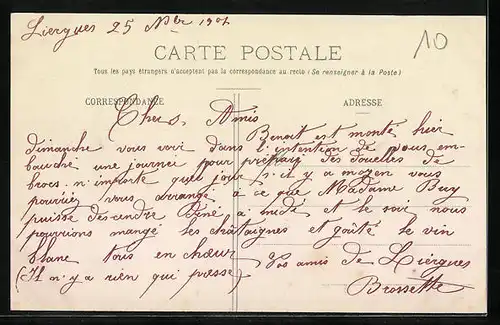 Liergues 25 Nbr 1904
10
CARTE POSTALE
Tous les pays étrangers n'acceptent pas la correspondance au recto (Se renseigner à la Poste)
CORRESPONDANCE
ADRESSE
Chers Amis
Benoit est monté hier
dimanche vous voir dans l'intention de vous em-
bauché une journée pour des douelles de
brocs. n'importe quel jour s'il y a moyen vous
pourriez vous arrangé à ce que Madame Buy
puisse descendre à midi et le soir nous
pourrions mangé ses châtaignes et goûté le vin
blanc tous en chœur
(Il n'y a rien qui presse)
Vos amis de Liergues
Brossette